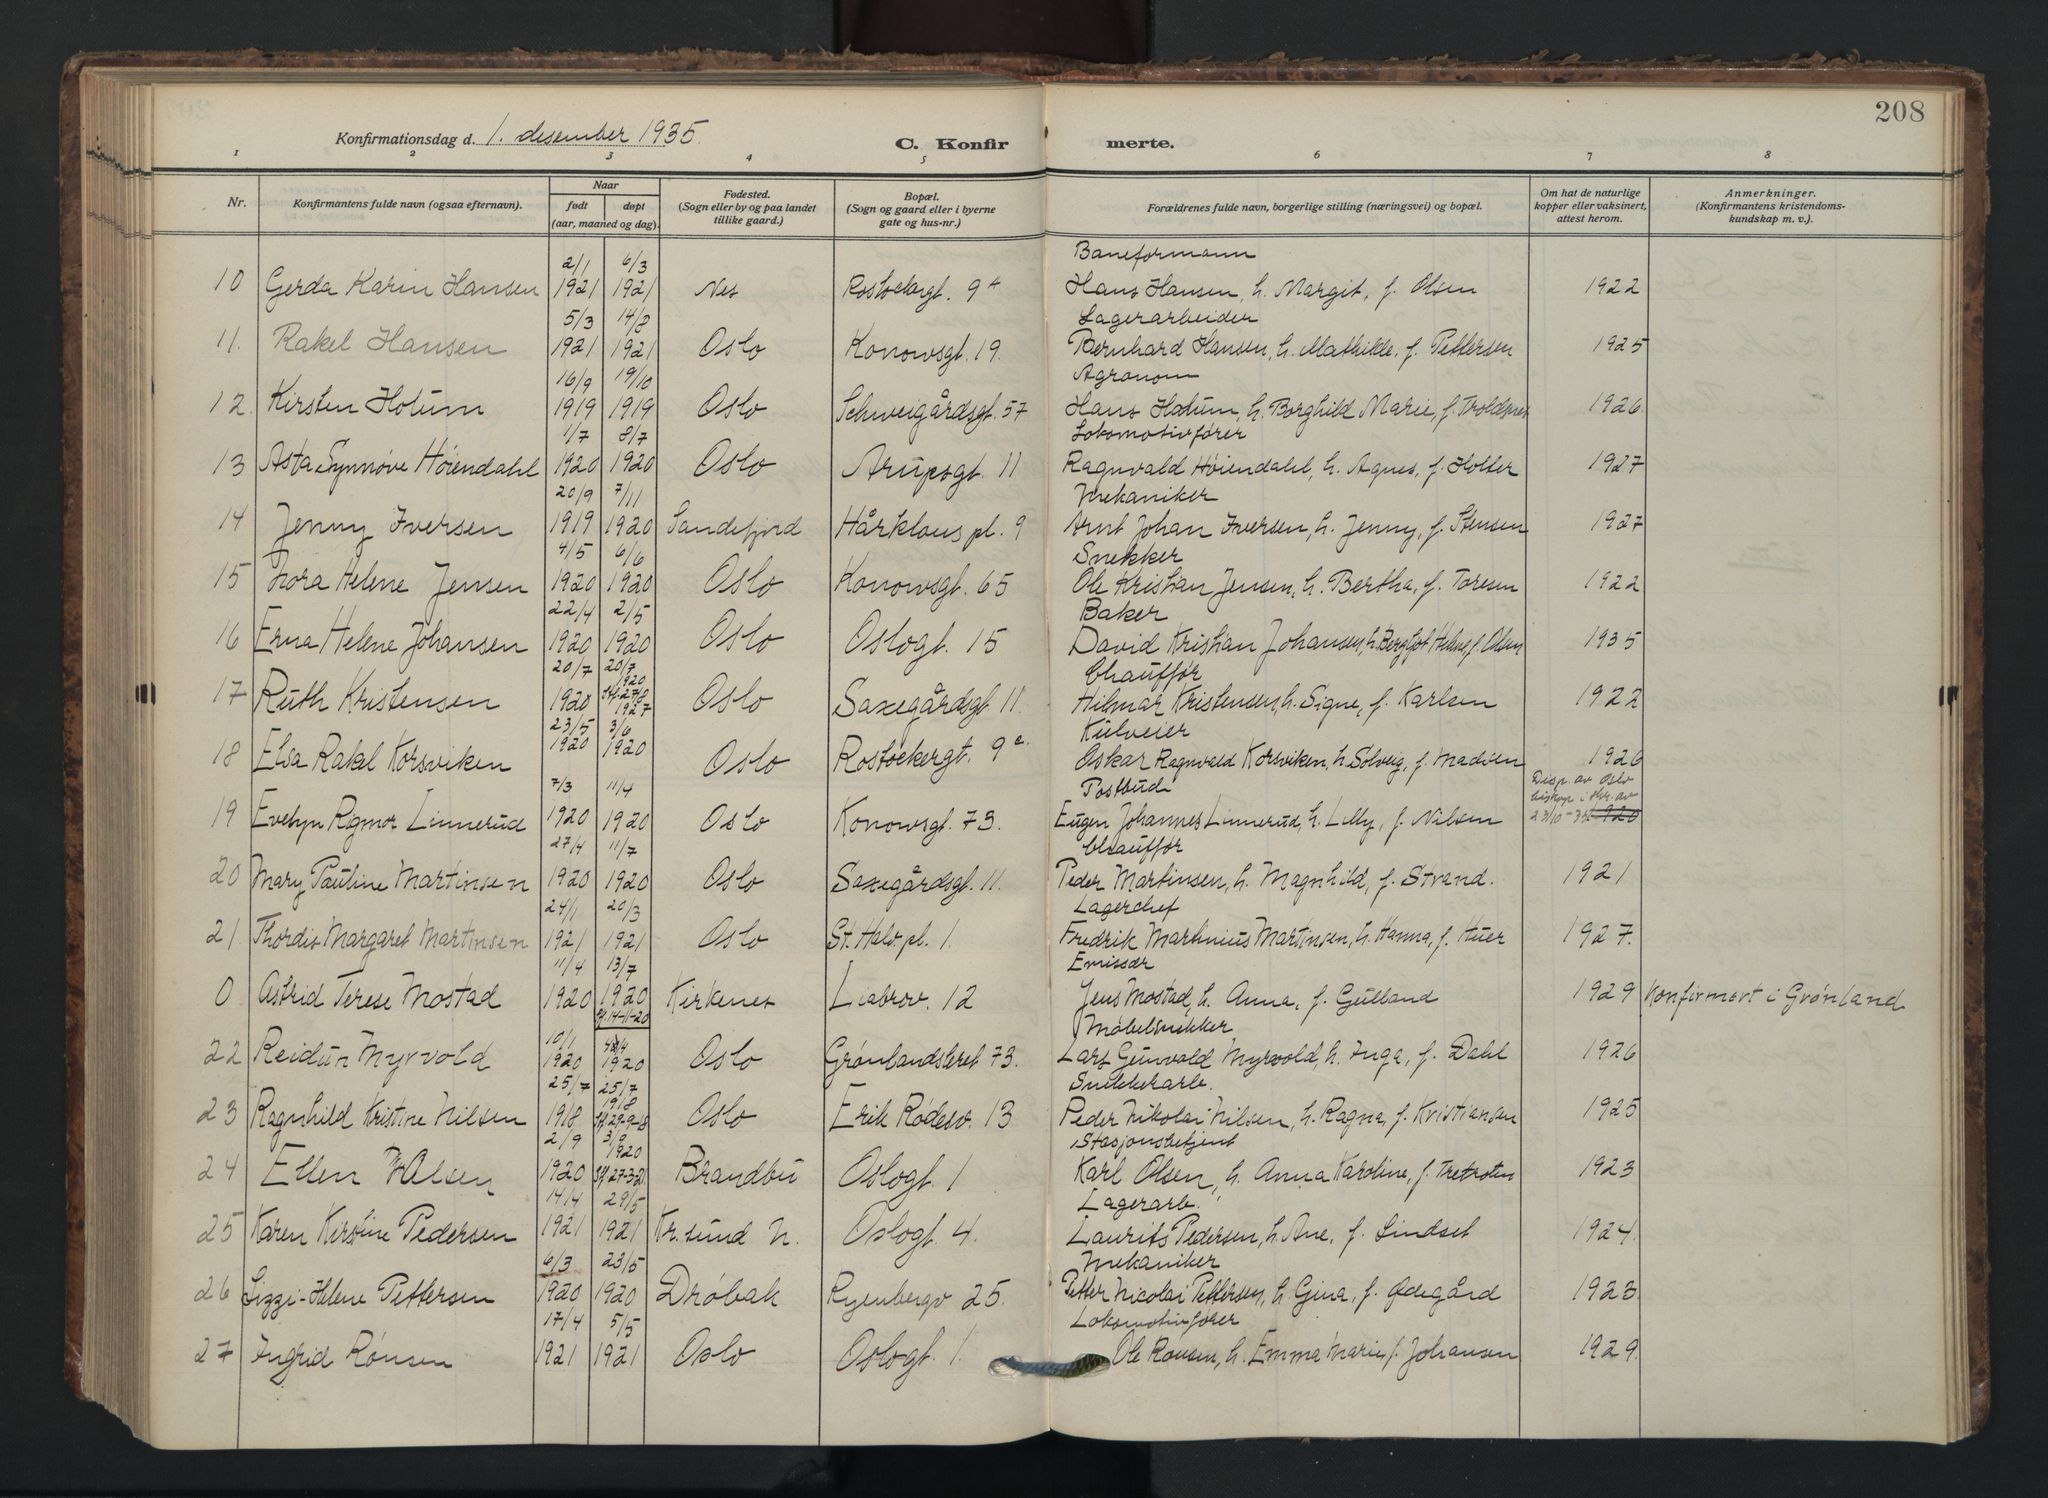 208
Konfirmationsdag d. 1. desember 1935. C. Konfirmerte.
1 2 3 4 5 6 7 8
Nr. Konfirmantens fulde navn (ogsaa efternavn). Naar født døpt (aar, maaned og dag). Fødested. (Sogn eller by og paa landet tillike gaard.) Bopæl. (Sogn og gaard eller i byerne gate og hus-nr.) Forældrenes fulde navn, borgerlige stilling (næringsvei) og bopæl. Om hat de naturlige kopper eller vaksinert, attest herom. Anmerkninger. (Konfirmantens kristendomskundskap m. v.).
2/1 6/3 Baneformann
10 Gerda Karin Hansen 1921 1921 Nes Rostockergt. 9a Hans Hansen, h. Margit, f. Olsen 1922
5/3 14/8 Lagerarbeider
11. Rakel Hansen 1921 1921 Oslo Konowsgt. 19. Bernhard Hansen, h. Mathilde, f. Pettersen 1925
16/9 19/10 Agronom
12. Kirsten Hotum 1919 1919 Oslo Schweigårdsgt. 57 Hans Hotum, h. Borghild Marie, f. 1926.
1/7 8/7 Lokomotivfører
13 Asta Synnøve Høiendahl 1920 1920 Oslo Arupsgt. 11 Ragnvald Høiendahl, h. Agnes, f. Holter 1927
20/9 7/11 Mekaniker
14 Jenny Iversen 1919 1920 Sandefjord Hårklous pl. 9 Arnt Johan Iversen, h. Jenny, f. Stensen 1927
4/5 6/6 Snekker
15 Nora Helene Jensen 1920 1920 Oslo Konowsgt. 65 Ole Kristian Jensen, h. Bertha, f. Toresen 1922
22/4 2/5 Baker
16 Erna Helene Johansen 1920 1920 Oslo Oslogt. 15 David Kristian Johansen, h. Bergljot Helene, f. Olsen 1935
20/7 20/7 1920 Chauffør
17 Ruth Kristensen 1920 Stf. 27/8 1927 Oslo Saxegårdsgt. 11. Hilmar Kristensen, h. Signe, f. Karlsen 1922
23/5 3/6 Kulveier
18 Elsa Rakel Korsviken 1920 1920 Oslo Rostockergt. 9c. Oskar Ragnvald Korsviken, h. Solveig, f. Madsen 1926
7/3 11/4 Postbud Disp. av Oslo
19 Evelyn Ragmor Linnerud 1920 1920 Oslo Konowsgt. 73. Eugen Johannes Linnerud, h. Lilly, f. Nilsen biskop i skr. av 23/10-35 1920
27/4 11/7 Chauffør
20 Mary Pauline Martinsen 1920 1920 Oslo Saxegårdsgt. 11. Peder Martinsen, h. Magnhild, f. Strand. 1921
24/1 20/3 Lagerchef
21 Thordis Margaret Martinsen 1921 1921 Oslo St. Halv. pl. 1. Fredrik Martinius Martinsen, h. Hanna, f. Huer 1927.
11/4 13/7 Emissær
0 Astrid Terese Mostad 1920 1920 Stf. 14-11-20 Kirkenes Liabrov. 12 Jens Mostad, h. Anna, f. Gulland 1929 Konfirmert i Grønland
10/1 4/4 Møbelsnekker
22 Reidun Myrvold 1920 1920 Oslo Grønlandsleret 73. Lars Gunvald Myrvold, h. Inga, f. Dahl 1926
25/7 25/7 1918 Snekkerarb.
23 Ragnhild Kristine Nilsen 1918 Stf. 29-9-18 Oslo Erik Rødesv. 13 Peder Nikolai Nilsen, h. Ragna, f. Kristiansen 1925
2/9 3/9 1920 Stasjonsbetjent
24 Ellen Olsen 1920 Stf. 27-3-21 Brandbu Oslogt. 1 Karl Olsen, h. Anna Karoline, f. 1923
14/4 29/5 Lagerarb.
25 Karen Kirstine Pedersen 1921 1921 Kr.sund N. Oslogt. 4. Laurits Pedersen, h. Ane, f. Lindset 1924.
6/3 23/5 Mekaniker
26 Lizzi-Helene Pettersen 1920 1920 Drøbak Ryenbergv 25. Petter Nicolai Pettersen, h. Gina, f. Ødegård 1923.
17/4 5/5 Lokomotivfører
27 Ingrid Rønsen 1921 1921 Oslo Oslogt. 1. Ole Rønsen, h. Emma Marie, f. Johansen 1929.